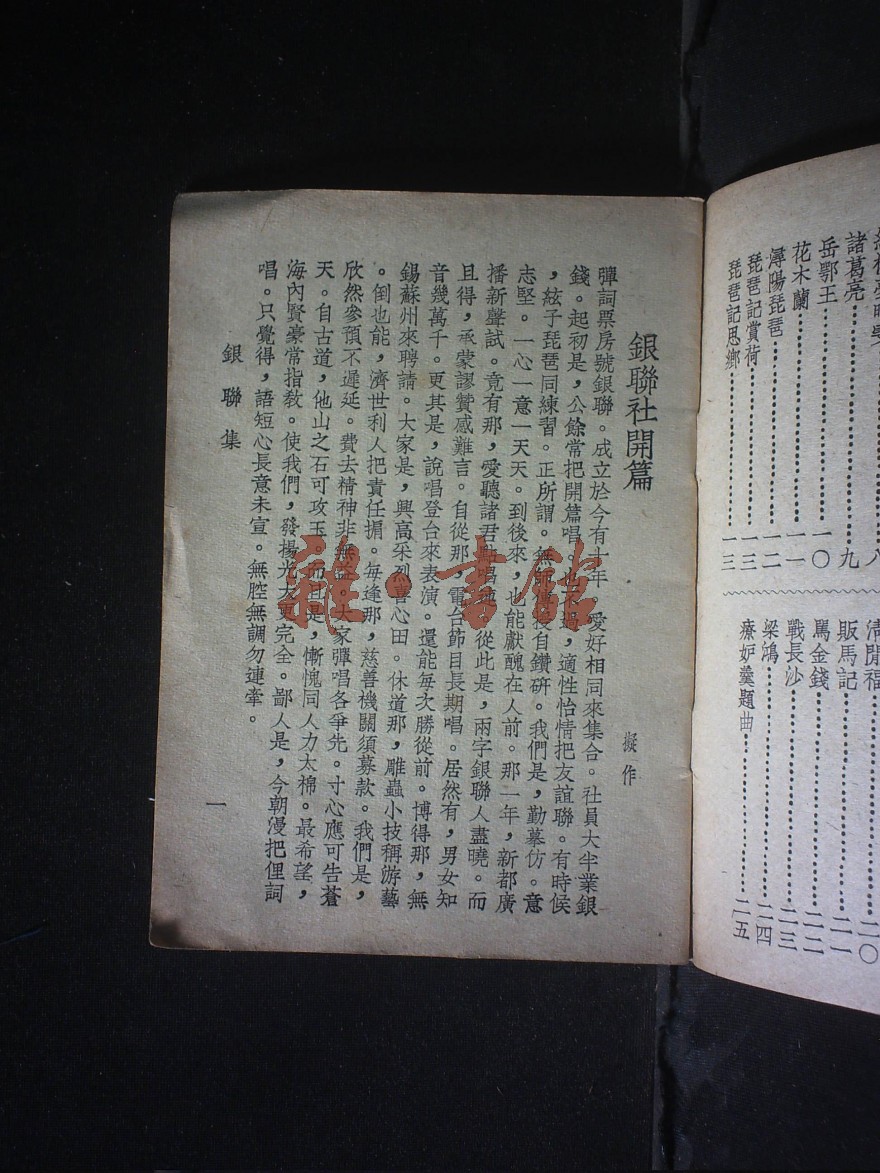 諸葛亮⋯⋯九
岳鄂王⋯⋯一〇
花木蘭⋯⋯一一
潯陽琵琶⋯⋯一二
琵琶記賞荷⋯⋯一三
琵琶記思鄉⋯⋯一三
清閒福⋯⋯二〇
販馬記⋯⋯二一
罵金錢⋯⋯二二
戰長沙⋯⋯二三
梁鴻⋯⋯二四
療妒羹題曲⋯⋯二五
銀聯社開篇
擬作
彈詞票房號銀聯。成立於今有十年。愛好相同來集合。社員大半業銀
錢。起初是,公餘常把開篇唱。也不過,適性怡情把友誼聯。有時候
,絃子琵琶同練習。正所謂。無師傳授自鑽研。我們是,勤摹仿。意
志堅。一心一意一天天。到後來,也能獻醜在人前。那一年,新都廣
播新聲試。竟有那,愛聽諸君點唱連。從此是,兩字銀聯人盡曉。而
且得,承蒙謬贊感難言。自從那,電台節目長期唱。居然有,男女知
音幾萬千。更其是,說唱登台來表演。還能每次勝從前。博得那,無
錫蘇州來聘請。大家是,興高采烈喜心田。休道那,雕蟲小技稱游藝
。倒也能,濟世利人把責任掮。每逢那,慈善機關須募款。我們是,
欣然參預不遲延。費去精神非無益。大家彈唱各爭先。寸心應可告蒼
天。自古道,他山之石可攻玉。而且是,慚愧同人力太棉。最希望,
海內賢豪常指教。使我們,發揚光大更完全。鄙人是,今朝漫把俚詞
唱。只覺得,語短心長意未宣。無腔無調勿連牽。
銀聯集
一
雜·書館